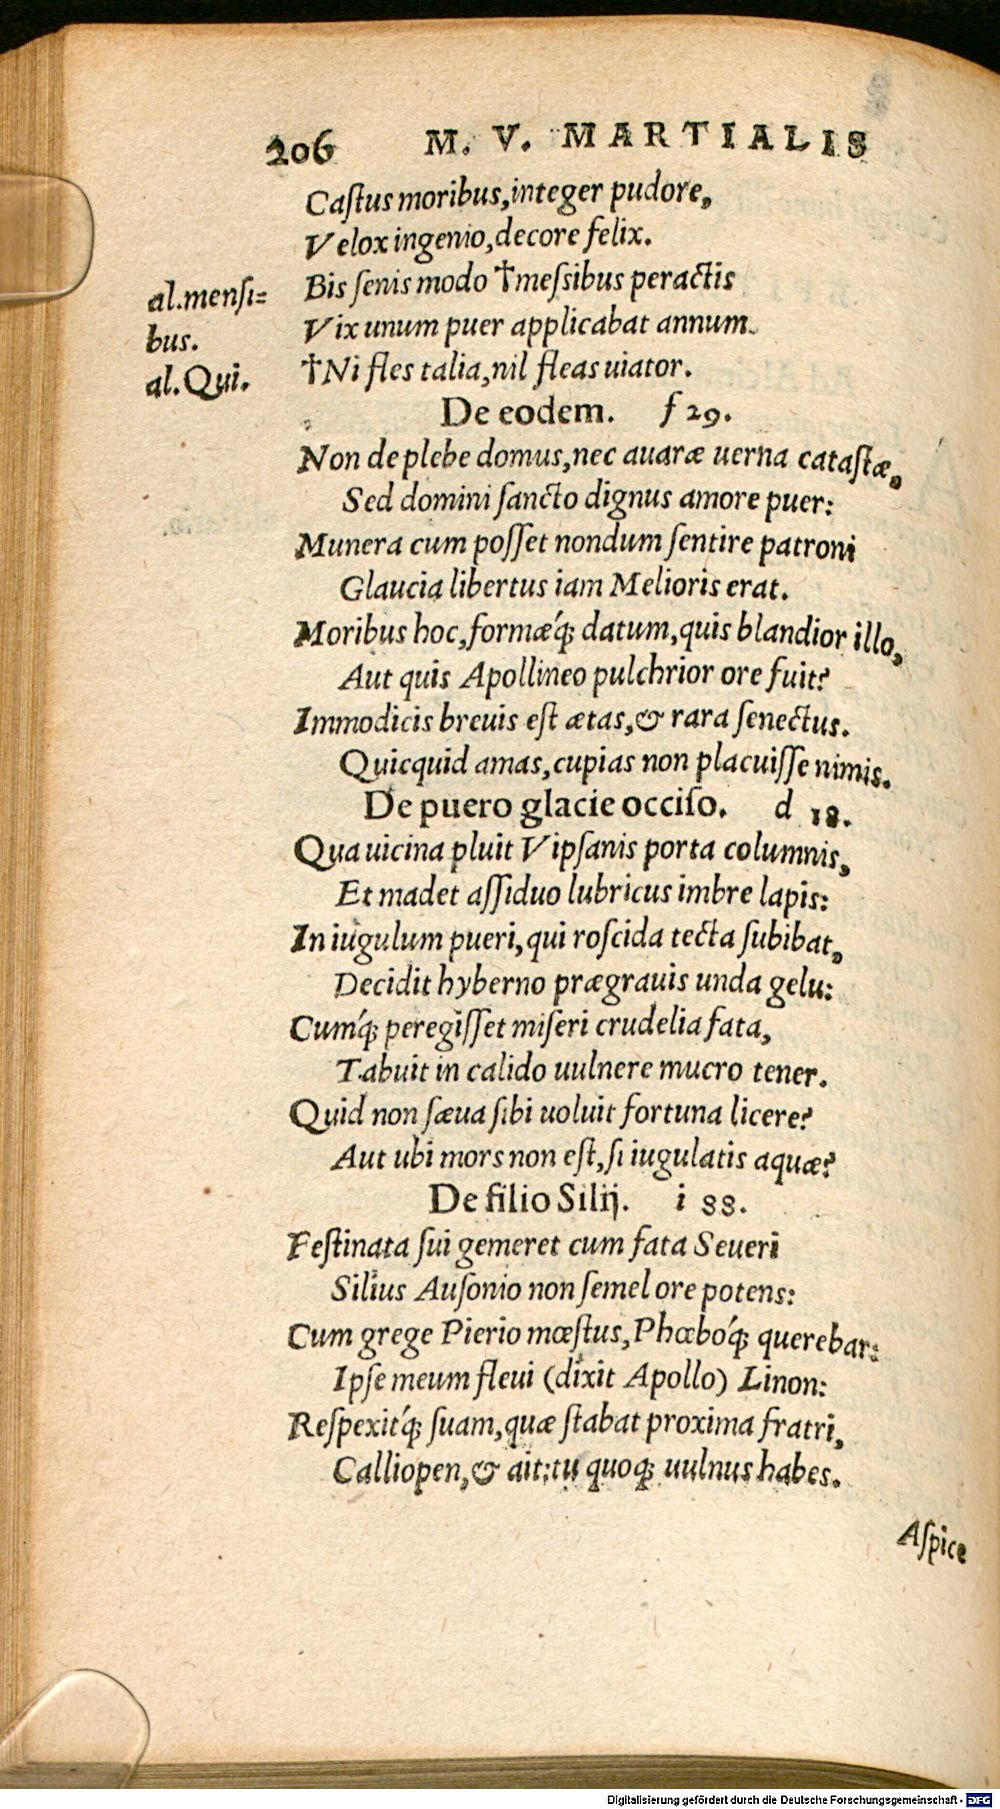 206 M. V. MARTIALIS
Caſtus moribus, integer pudore,
Velox ingenio, decore felix.
Bis ſenis modo †meſsibus peractis
al.menſi=
bus.
Vix unum puer applicabat annum.
al.Qui.
†Ni fles talia, nil fleas uiator.
De eodem. f 29.
Non de plebe domus, nec auaræ uerna cataſtæ,
Sed domini ſancto dignus amore puer:
Munera cum poſſet nondum ſentire patroni
Glaucia libertus iam Melioris erat.
Moribus hoc, formæq́; datum, quis blandior illo,
Aut quis Apollineo pulchrior ore fuit?
Immodicis breuis eſt ætas, & rara ſenectus.
Quicquid amas, cupias non placuiſſe nimis.
De puero glacie occiſo. d 18.
Qua uicina pluit Vipſanis porta columnis,
Et madet aſſiduo lubricus imbre lapis:
In iugulum pueri, qui roſcida tecta ſubibat,
Decidit hyberno prægrauis unda gelu:
Cumq́; peregiſſet miſeri crudelia fata,
Tabuit in calido uulnere mucro tener.
Quid non ſæua ſibi uoluit fortuna licere?
Aut ubi mors non eſt, ſi iugulatis aquæ?
De filio Silij. i 88.
Feſtinata ſui gemeret cum fata Seueri
Silius Auſonio non ſemel ore potens:
Cum grege Pierio mœſtus, Phœboq́; querebar:
Ipſe meum fleui (dixit Apollo) Linon:
Reſpexitq́; ſuam, quæ ſtabat proxima fratri,
Calliopen, & ait: tu quoq; uulnus habes.
Aſpice
Digitalisierung gefördert durch die Deutsche Forschungsgemeinschaft - DFG